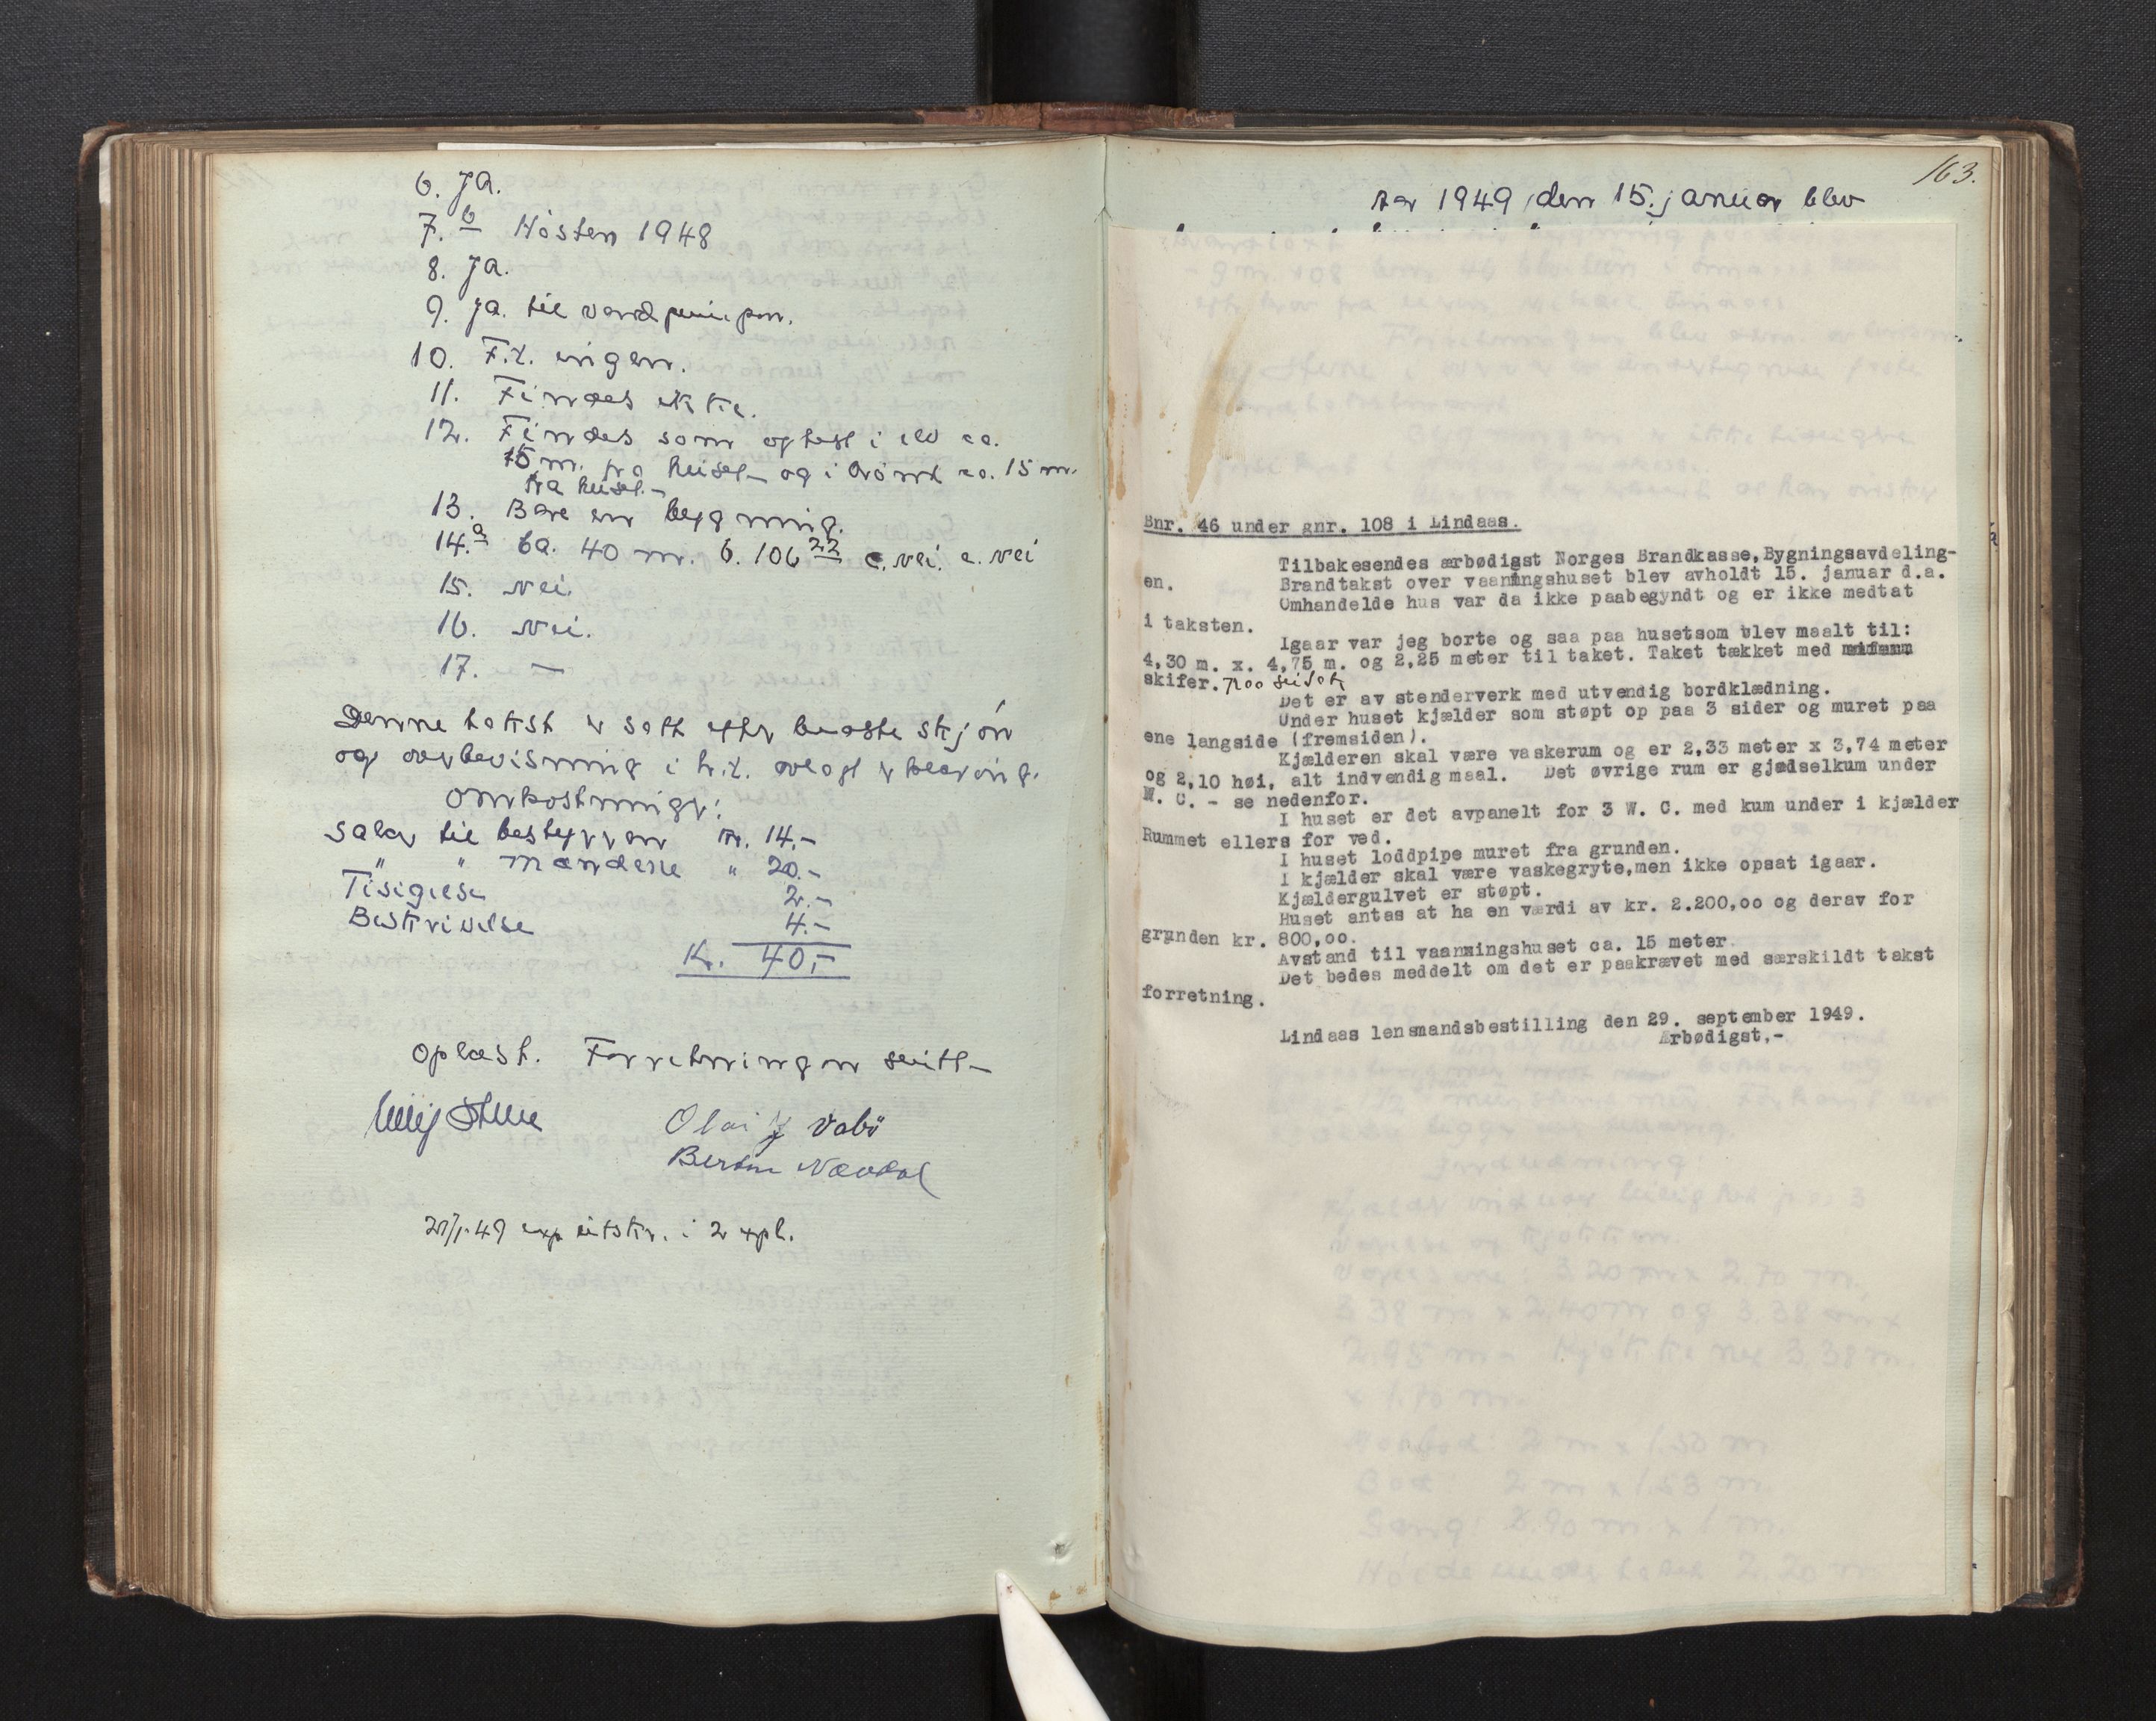 6. Ja.
7. b Hösten 1948
8. Ja.
9. Ja. til
10. F.t. ingen.
11. Findes ikke.
12. Findes som i elv ca.
15 m. fra huset og i brönd ca. 15 m.
fra huset.
13. Bare en bygning.
14. a ca. 40 m. b. 106 22 c. Nei. e. Nei
15. Nei.
16. Nei.
17. —
Denne takst er satt efter beste skjön
og overbevisning i h.t.
Omkostninger:
Salær til bestyreren kr. 14.-
" " mændene " 20.-
Tisigelse 2.-
Beskrivelse 4.-
Kr. 40,-
Oplæst. Forretningen slutt
Olai J Vabö
Bertin Nævdal
21/1-49 exp utskr. i 2 expl.
163.
Aar 1949 den 15. januar blev
Bnr. 46 under gnr. 108 i Lindaas.
Tilbakesendes ærbødigst Norges Brandkasse,Bygningsavdeling-
en.
Brandtakst over vaaningshuset blev avholdt 15. januar d.a.
Omhandelde hus var da ikke paabegyndt og er ikke medtat
i taksten.
Igaar var jeg borte og saa paa husetsom blev maalt til:
4,30 m. x. 4,75 m. og 2,25 meter til taket. Taket tækket med
skifer.
Det er av stenderverk med utvendig bordklædning.
Under huset kjælder som støpt op paa 3 sider og muret paa
ene langside (fremsiden).
Kjælderen skal være vaskerum og er 2,33 meter x 3,74 meter
og 2,10 høi, alt indvendig maal. Det øvrige rum er gjødselkum under
W. C. - se nedenfor.
I huset er det avpanelt for 3 W. C. med kum under i kjælder
Rummet ellers for ved.
I huset loddpipe muret fra grunden.
I kjælder skal være vaskegryte,men ikke opsat igaar.
Kjældergulvet er støpt.
Huset antas at ha en værdi av kr. 2.200,oo og derav for
grunden kr. 800,oo.
Avstand til vaanxingshuset ca. 15 meter.
Det bedes meddelt om det er paakrævet med særskildt takst
forretning.
Lindaas lensmandsbestilling den 29. september 1949.
Ærbødigst,-